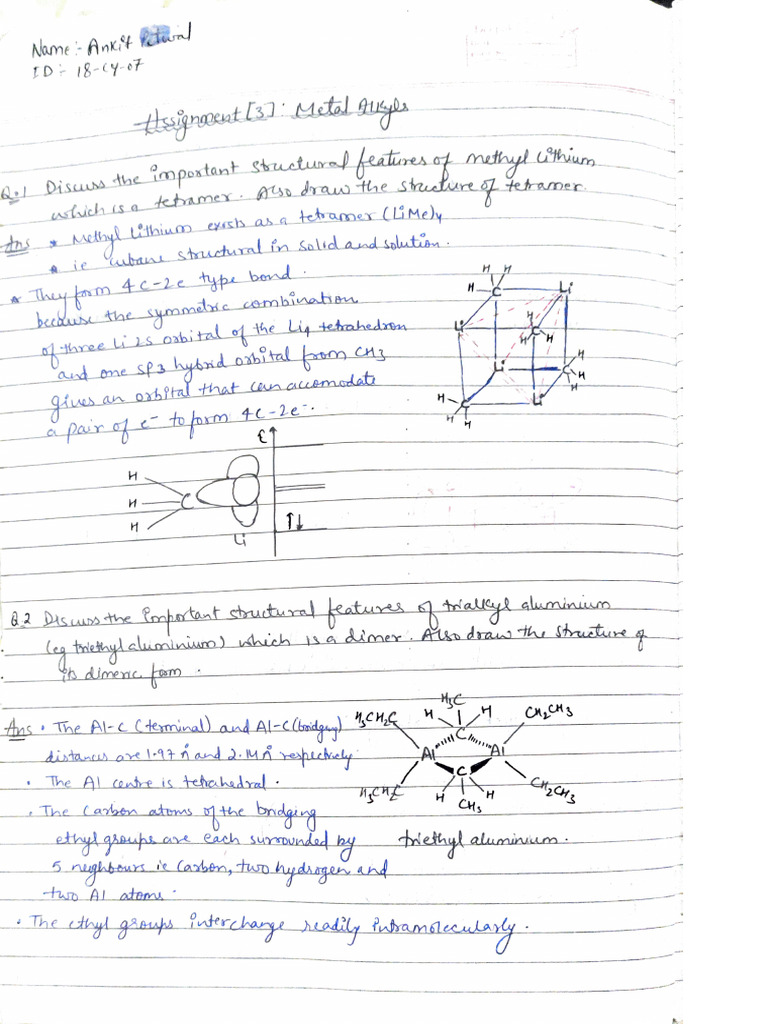 Name:- Ankit Petwal
ID:- 18-CY-07
Assignment [3]: Metal Alkyls
Q.1 Discuss the important structural features of methyl lithium
which is a tetramer. Also draw the structure of tetramer.
Ans * Methyl Lithium exists as a tetramer (LiMe)4
* ie cubane structural in solid and solution.
* They form 4c-2e type bond.
because the symmetric combination
of three Li 2s orbital of the Li4 tetrahedron
and one SP3 hybrid orbital from CH3
gives an orbital that can accomodate
a pair of e- to form 4c-2e-.
H H
H C Li
Li H
C
H H
Li H
C H
H
H C Li
H H
E
H
H C
H
Li
Q.2 Discuss the important structural features of trialkyl aluminium
(eg triethyl aluminium) which is a dimer. Also draw the structure of
its dimeric form.
Ans • The Al-C (terminal) and Al-C (bridging)
distances are 1.97 Å and 2.14 Å respectively
• The Al centre is tetrahedral.
• The carbon atoms of the bridging
ethyl groups are each surrounded by
5 neighbours ie carbon, two hydrogen and
two Al atoms.
• The ethyl groups interchange readily intramolecularly.
H3C
H3CH2C H H CH2CH3
C
Al Al
C
H3CH2C H H CH2CH3
CH3
triethyl aluminium.